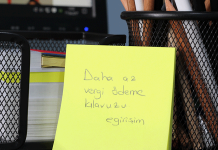 Daha az
vergi ödeme
kılavuzu
egirisim